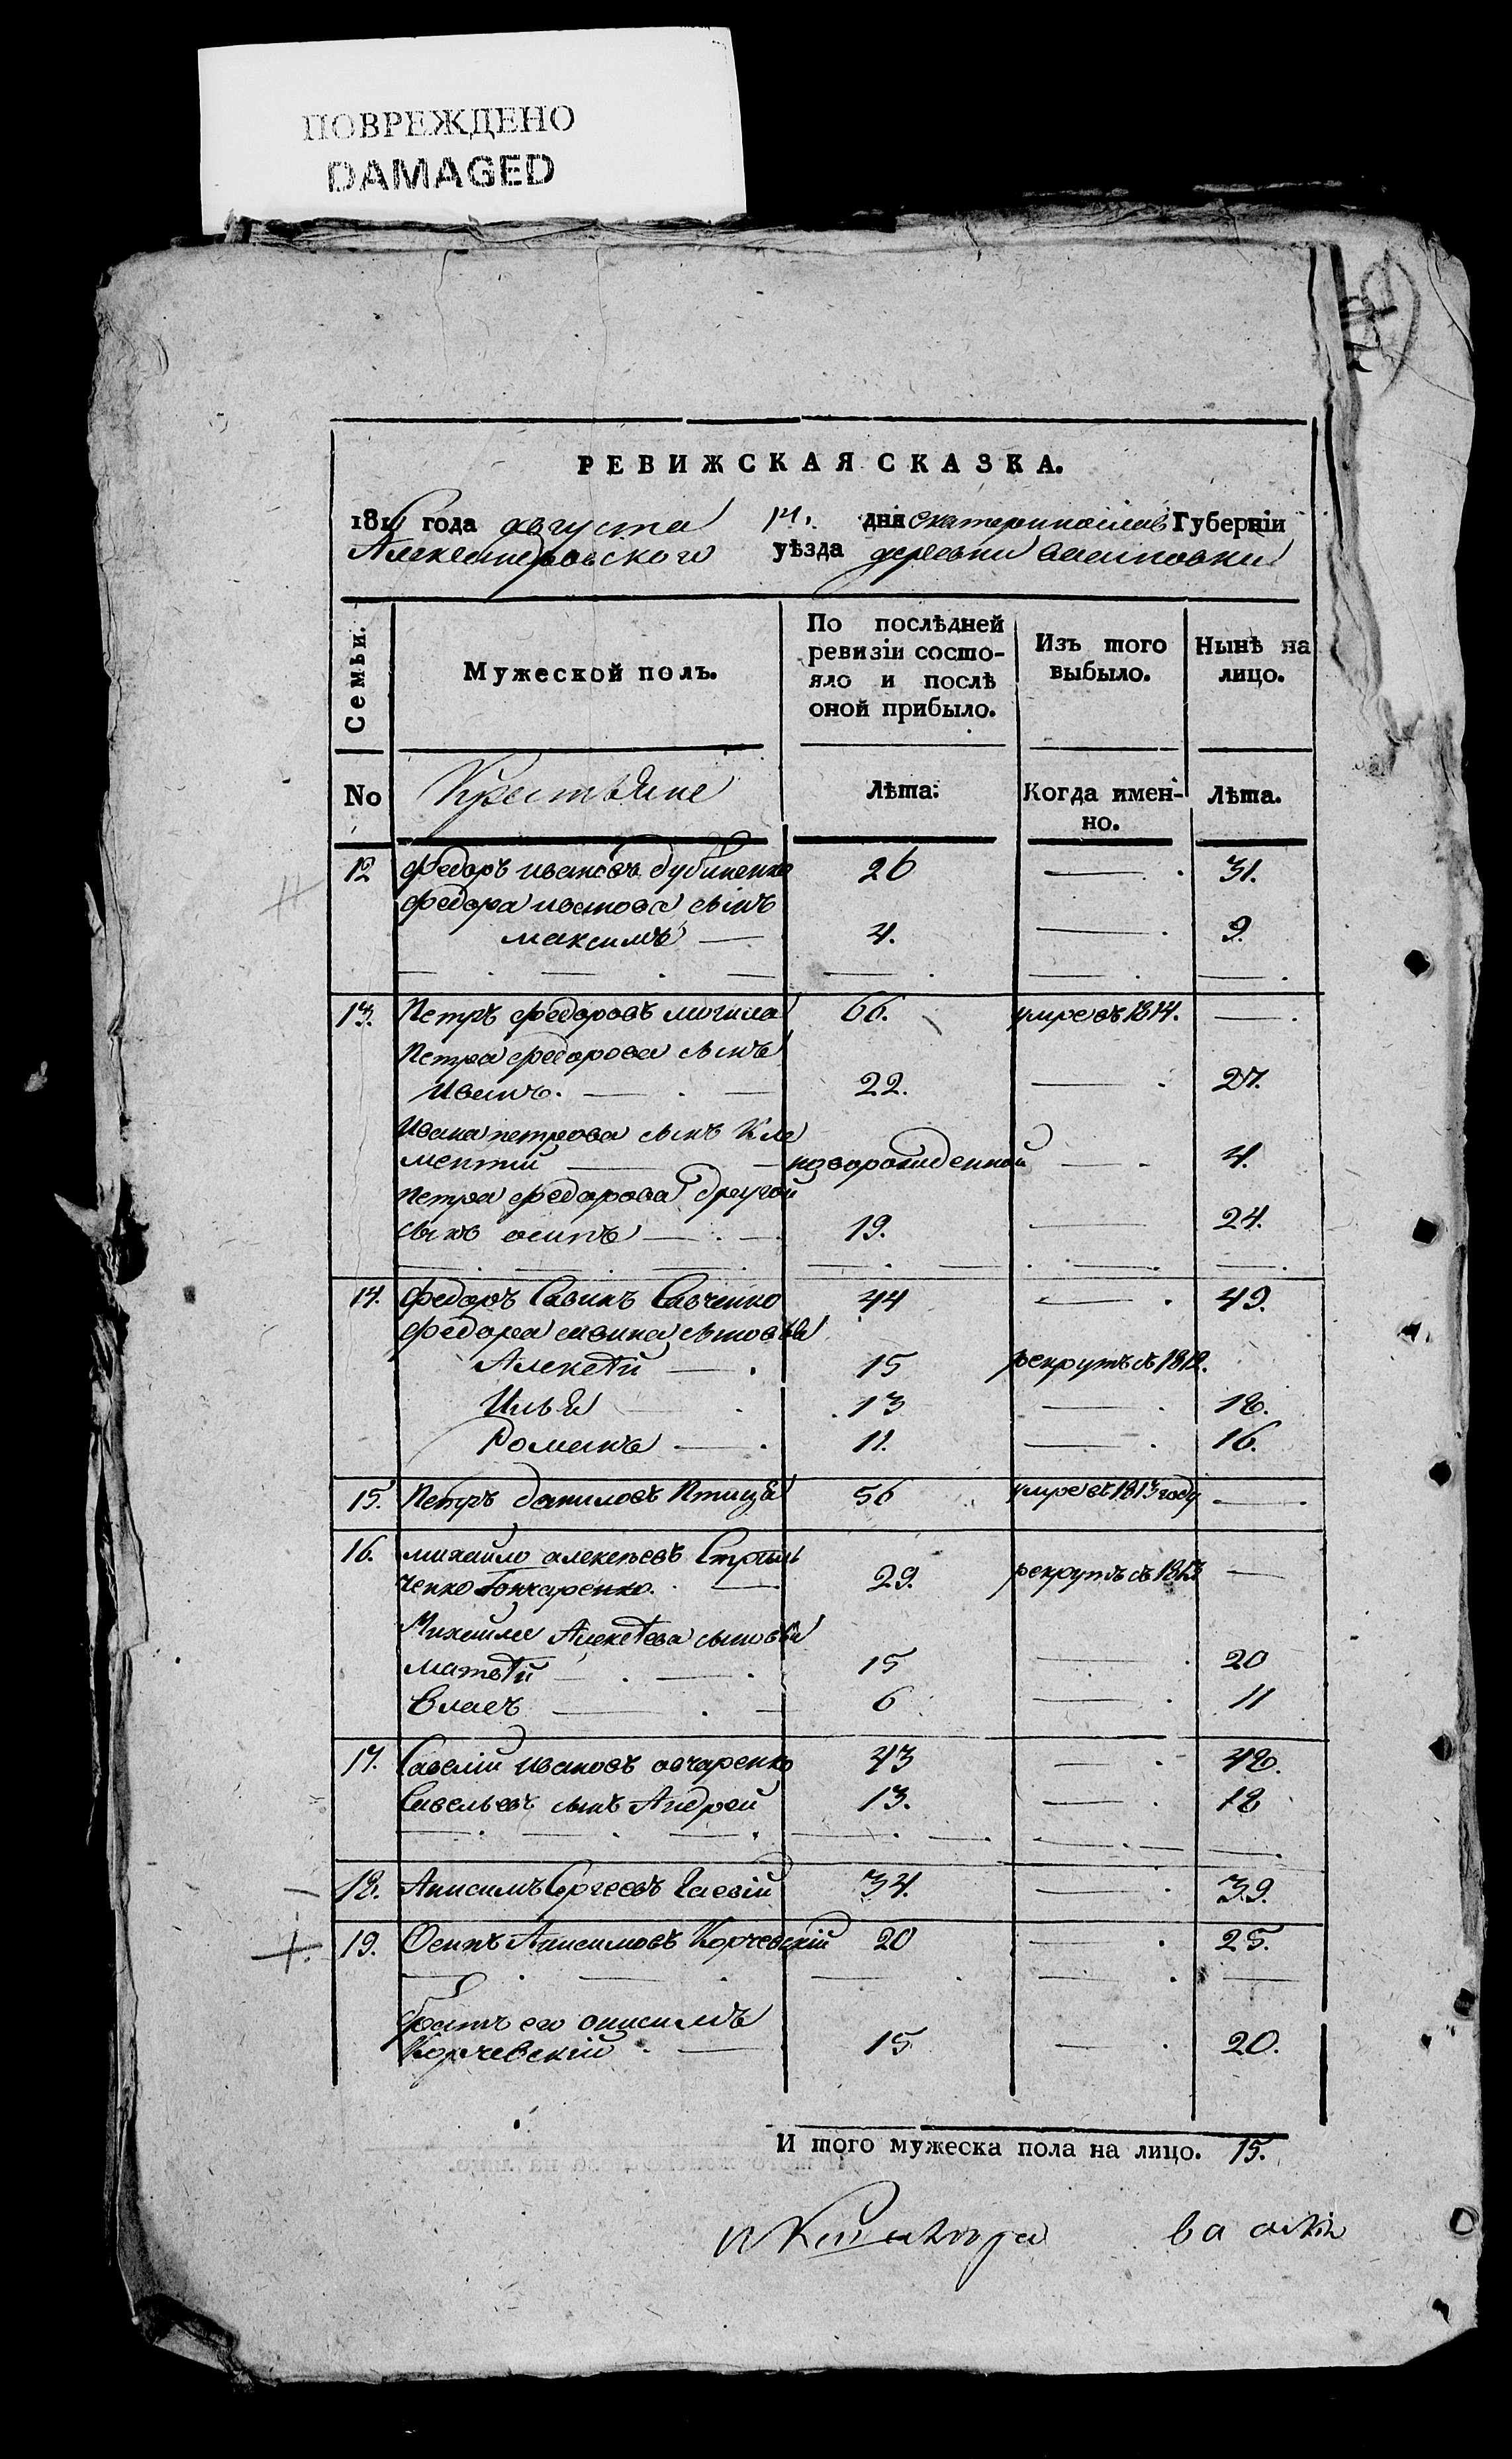 ПОВРЕЖДЕНО
DAMAGED
РЕВИЖСКАЯ СКАЗКА.
1816 года августа 14. дня Екатеринослав Губерніи
Александровского уѣзда деревни
Семьи. Мужеской полъ. По послѣдней ревизіи состояло и послѣ оной прибыло. Изъ того выбыло. Нынѣ на лицо.
No Крестьяне Лѣта: Когда именно. Лѣта.
12 Федоръ ивановъ дубиненко 26 — 31.
федора иванова сынъ
максимъ — 4. — 9.
13. Петръ федоровъ могила 66. умре въ 1814. —
Петра федорова сынъ
Иванъ. — 22. — 27.
Ивана петрова сынъ Кле
ментій — новорожденной — 4.
петра федорова другой
сынъ осипъ — 19. — 24.
14. Федоръ Савинъ Савченко 44 — 49.
федора савина сыновья
Алексѣй — 15 рекрутъ съ 1812.
Илья — 13 — 18.
Романъ — 11. — 16.
15. Петръ даниловъ Птица 56 умре въ 1813 году —
16. михайло алексѣевъ Стриль
ченко Гончаренко. — 29. рекрутъ съ 1813 —
Михайла Алексѣева сыновья
матвѣй — 15 — 20
Власъ — 6 — 11
17. Савелій ивановъ овчаренко 43 — 48.
Савельевъ сынъ Андрей 13. — 18
18. Анисимъ Сергеевъ Гаевій 34. — 39.
19. Осипъ Анисимовъ Корчевскій 20 — 25.
братъ его онисимъ
Корчевскій — 15 — 20.
И того мужеска пола на лицо. 15.